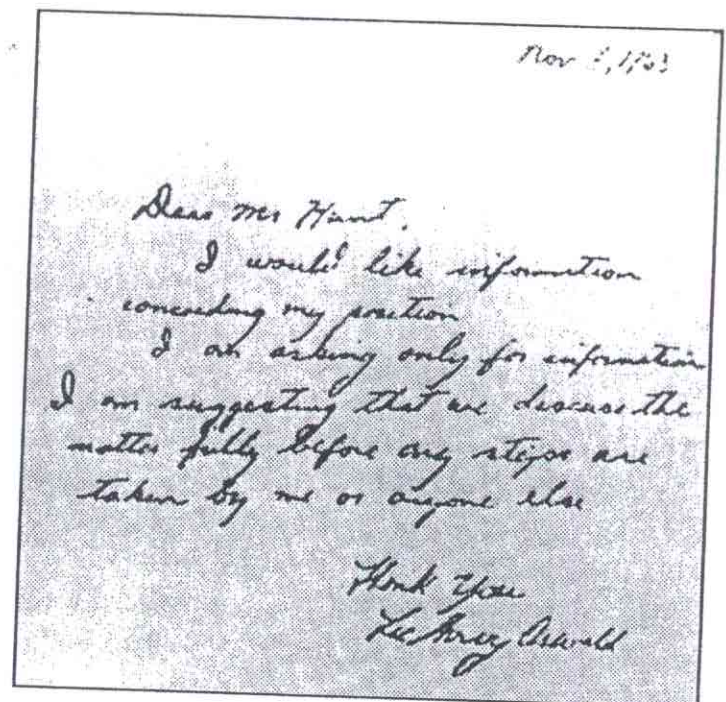 Nov 8, 1963
Dear Mr Hunt,
I would like information
concerding my position
I am asking only for information
I am suggesting that we discuss the
matter fully before any steps are
taken by me or anyone else
Thank You
Lee Harvey Oswald